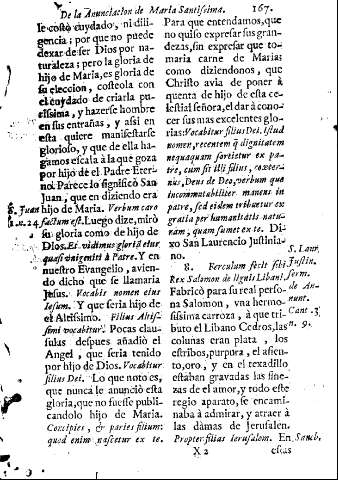 De la Anunciacion de Maria Santissima. 167.
le costò cuydado, ni dili-
gencia; por que no puede
dexar de ser Dios por na-
turaleza; pero la gloria de
hijo de Maria, es gloria de
su eleccion, costeola con
el cuydado de criarla pu-
rissima, y hazerse hombre
en sus entrañas, y assi en
esta quiere manifestarse
glorioso, y que de ella ha-
gamos escala à la que goza
por hijo de el Padre Eter-
no. Parece lo significò San
Juan, que en diziendo era
S. Juan hijo de Maria. Verbum caro
1. v. 24 factum est. Luego dize, mirò
su gloria como de hijo de
Dios. Et vidimus gloriã eius
quasi vnigeniti à Patre. Y en
nuestro Evangelio, avien-
do dicho que se llamaria
Jesus. Vocabis nomen eius
Iesum. Y que seria hijo de
el Altissimo. Filius Altis-
simi vocabitur. Pocas clau-
sulas despues añadiò el
Angel, que seria tenido
por hijo de Dios. Vocabitur
filius Dei. Lo que noto es,
que nunca le anunciò esta
gloria, que no fuesse publi-
candolo hijo de Maria.
Concipies, & paries filium:
quod enim nascetur ex te.
Para que entendamos, que
no quiso expresar sus gran-
dezas, sin expresar que to-
maria carne de Marias
como diziendonos, que
Christo avia de poner à
quenta de hijo de esta ce-
lestial señora, el dar à cono-
cer sus mas excelentes glo-
rias: Vocabitur filius Dei. Istud
nomen, recentem q̃ dignitatem
nequaquam sortietur ex pa-
tre, cum sit illi filius, coæter-
nus, Deus de Deo, verbum que
incommutabiliter manens in
patre, sed eidem tribuetur ex
gratia per humanitatis natu-
ram, quam sumet ex te. Di-
xo San Laurencio Justinia-
no.
8. Ferculum fecit sibi
Rex Salomon de lignis Libani.
Fabricò para su real perso-
na Salomon, vna hermo-
sissima carroza, à que tri-
buto el Libano Cedros, las
colunas eran plata, los
estribos, purpura, el asien-
to, oro, y en el texadillo
estaban gravadas las fine-
zas de el amor, y todo este
regio aparato, se encami-
naba à admirar, y atraer à
las damas de Jerusalen.
Propter filias Ierusalem. En
S. Laur.
Justin.
serm.
de An-
nunt.
Cant. 3
n. 9.
Sancb.
X 2 estas